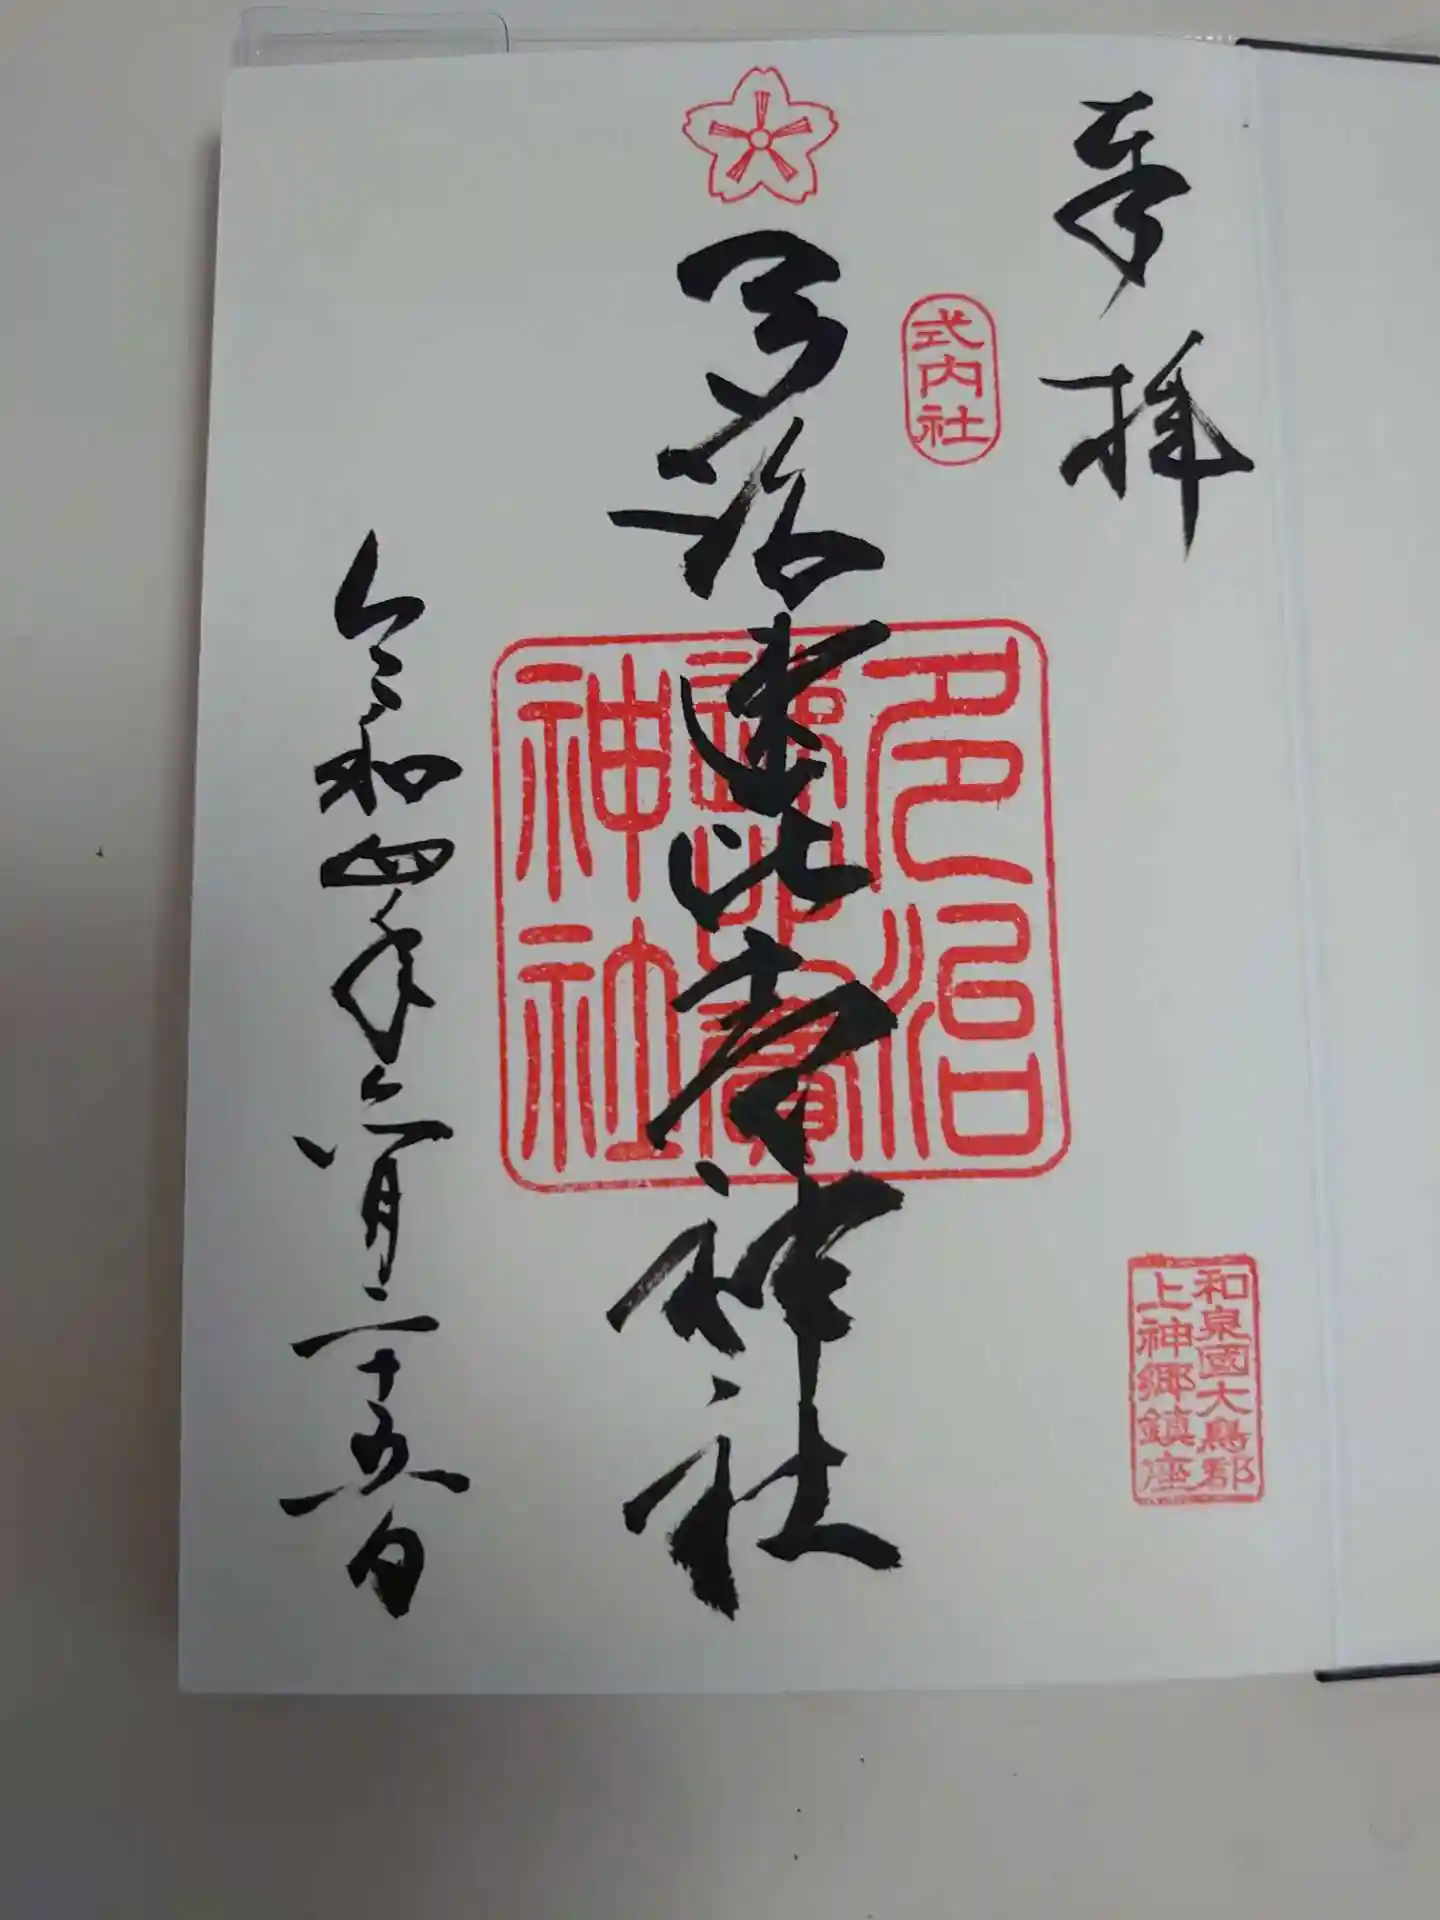 奉拝
式内社
和泉國大鳥郡
上神郷鎮座
多治速比売神社
多治
速比賣
神社
令和四年六月二十五日